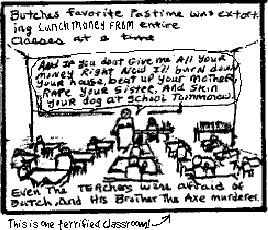 Butches Favorite Pastime was extort
ing LUNCH MONEY FROM entire
Classes at a time
And If You dont Give me All Your
money Right Now Ill burn down
Your house, beat up your mother,
RAPE Your Sister, And Skin
Your dog at School Tommorow
Even The TEAchers were afraid of
Butch, And His Brother The Axe murderer.
This is one terrified classroom!